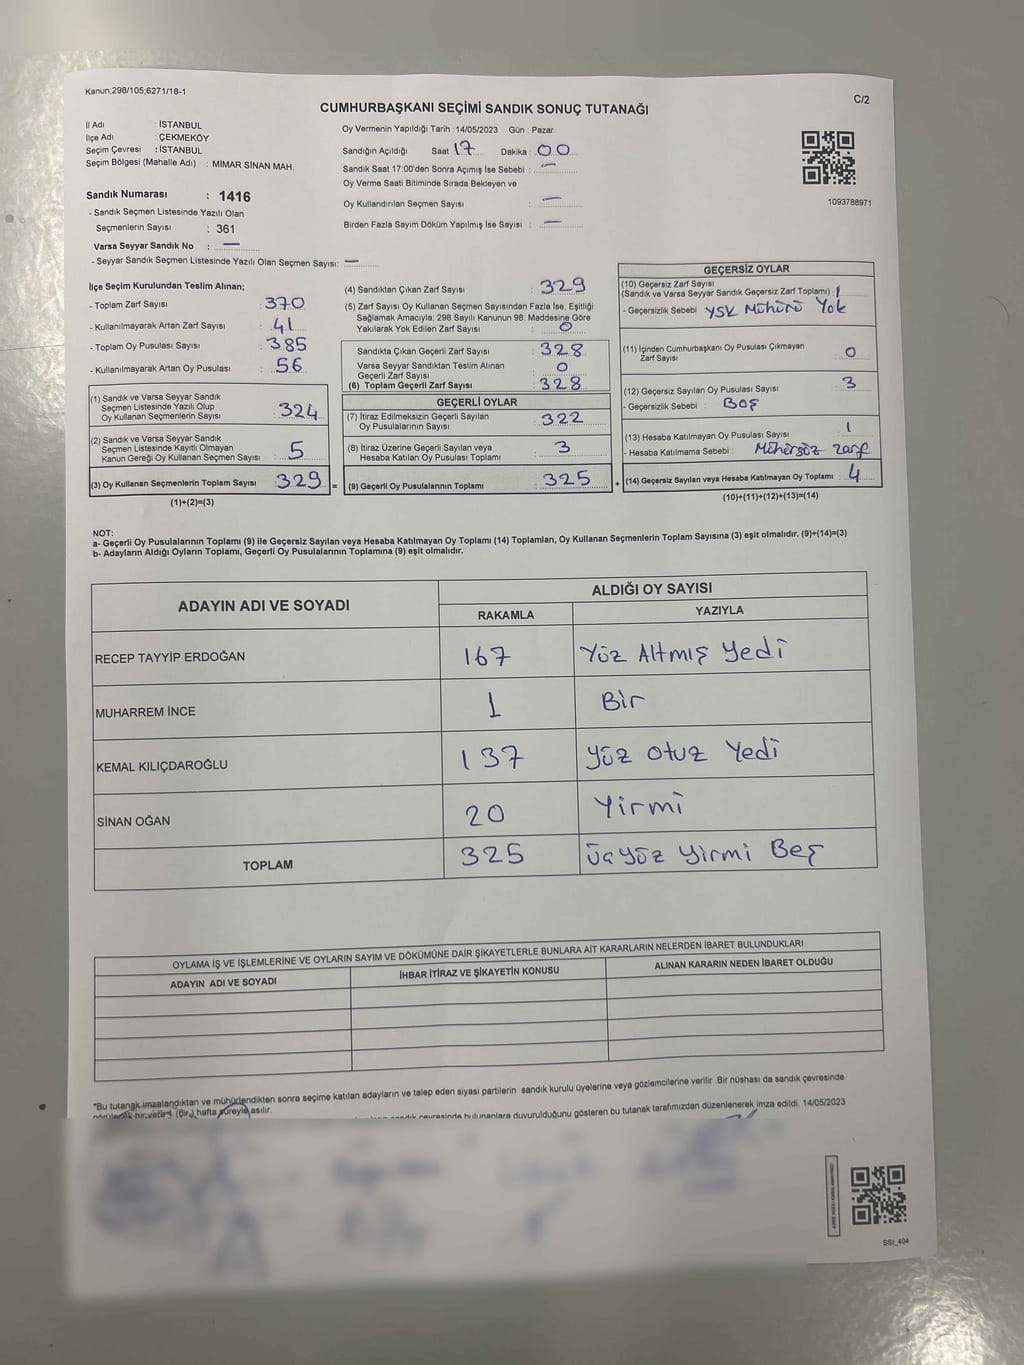 Kanun;298/105;6271/18-1
C/2
CUMHURBAŞKANI SEÇİMİ SANDIK SONUÇ TUTANAĞI
İl Adı : İSTANBUL
İlçe Adı : ÇEKMEKÖY
Seçim Çevresi : İSTANBUL
Seçim Bölgesi (Mahalle Adı) : MİMAR SİNAN MAH.
Sandık Numarası : 1416
- Sandık Seçmen Listesinde Yazılı Olan
Seçmenlerin Sayısı : 361
Varsa Seyyar Sandık No : —
- Seyyar Sandık Seçmen Listesinde Yazılı Olan Seçmen Sayısı: —
Oy Vermenin Yapıldığı Tarih : 14/05/2023 Gün : Pazar
Sandığın Açıldığı Saat 17 Dakika : 00
Sandık Saat 17:00'den Sonra Açılmış İse Sebebi : —
Oy Verme Saati Bitiminde Sırada Bekleyen ve
Oy Kullandırılan Seçmen Sayısı : —
Birden Fazla Sayım Döküm Yapılmış İse Sayısı : —
1093788971
İlçe Seçim Kurulundan Teslim Alınan;
- Toplam Zarf Sayısı : 370
- Kullanılmayarak Artan Zarf Sayısı : 41
- Toplam Oy Pusulası Sayısı : 385
- Kullanılmayarak Artan Oy Pusulası : 56
(1) Sandık ve Varsa Seyyar Sandık
Seçmen Listesinde Yazılı Olup
Oy Kullanan Seçmenlerin Sayısı : 324
(2) Sandık ve Varsa Seyyar Sandık
Seçmen Listesinde Kayıtlı Olmayan
Kanun Gereği Oy Kullanan Seçmen Sayısı : 5
(3) Oy Kullanan Seçmenlerin Toplam Sayısı : 329 =
(1)+(2)=(3)
(4) Sandıktan Çıkan Zarf Sayısı : 329
(5) Zarf Sayısı Oy Kullanan Seçmen Sayısından Fazla İse, Eşitliği
Sağlamak Amacıyla; 298 Sayılı Kanunun 98. Maddesine Göre
Yakılarak Yok Edilen Zarf Sayısı : 0
Sandıkta Çıkan Geçerli Zarf Sayısı : 328
Varsa Seyyar Sandıktan Teslim Alınan
Geçerli Zarf Sayısı : 0
(6) Toplam Geçerli Zarf Sayısı : 328
GEÇERLİ OYLAR
(7) İtiraz Edilmeksizin Geçerli Sayılan
Oy Pusulalarının Sayısı : 322
(8) İtiraz Üzerine Geçerli Sayılan veya
Hesaba Katılan Oy Pusulası Toplamı : 3
(9) Geçerli Oy Pusulalarının Toplamı : 325 +
GEÇERSİZ OYLAR
(10) Geçersiz Zarf Sayısı
(Sandık ve Varsa Seyyar Sandık Geçersiz Zarf Toplamı) : 1
- Geçersizlik Sebebi : YSK Mührü Yok
(11) İçinden Cumhurbaşkanı Oy Pusulası Çıkmayan
Zarf Sayısı : 0
(12) Geçersiz Sayılan Oy Pusulası Sayısı : 3
- Geçersizlik Sebebi : BOŞ
(13) Hesaba Katılmayan Oy Pusulası Sayısı : 1
- Hesaba Katılmama Sebebi : Mühürsüz zarf
(14) Geçersiz Sayılan veya Hesaba Katılmayan Oy Toplamı : 4
(10)+(11)+(12)+(13)=(14)
NOT:
a- Geçerli Oy Pusulalarının Toplamı (9) ile Geçersiz Sayılan veya Hesaba Katılmayan Oy Toplamı (14) Toplamları, Oy Kullanan Seçmenlerin Toplam Sayısına (3) eşit olmalıdır. (9)+(14)=(3)
b- Adayların Aldığı Oyların Toplamı, Geçerli Oy Pusulalarının Toplamına (9) eşit olmalıdır.
ADAYIN ADI VE SOYADI
ALDIĞI OY SAYISI
RAKAMLA YAZIYLA
RECEP TAYYİP ERDOĞAN 167 Yüz Altmış Yedi
MUHARREM İNCE 1 Bir
KEMAL KILIÇDAROĞLU 137 Yüz Otuz Yedi
SİNAN OĞAN 20 Yirmi
TOPLAM 325 Üçyüz Yirmi Beş
OYLAMA İŞ VE İŞLEMLERİNE VE OYLARIN SAYIM VE DÖKÜMÜNE DAİR ŞİKAYETLERLE BUNLARA AİT KARARLARIN NELERDEN İBARET BULUNDUKLARI
ADAYIN ADI VE SOYADI İHBAR İTİRAZ VE ŞİKAYETİN KONUSU ALINAN KARARIN NEDEN İBARET OLDUĞU
*Bu tutanak imzalandıktan ve mühürlendikten sonra seçime katılan adayların ve talep eden siyasi partilerin sandık kurulu üyelerine veya gözlemcilerine verilir. Bir nüshası da sandık çevresinde
(Bir) hafta süreyle asılır.
sandık çevresinde bulunanlara duyurulduğunu gösteren bu tutanak tarafımızdan düzenlenerek imza edildi. 14/05/2023
SSI_404